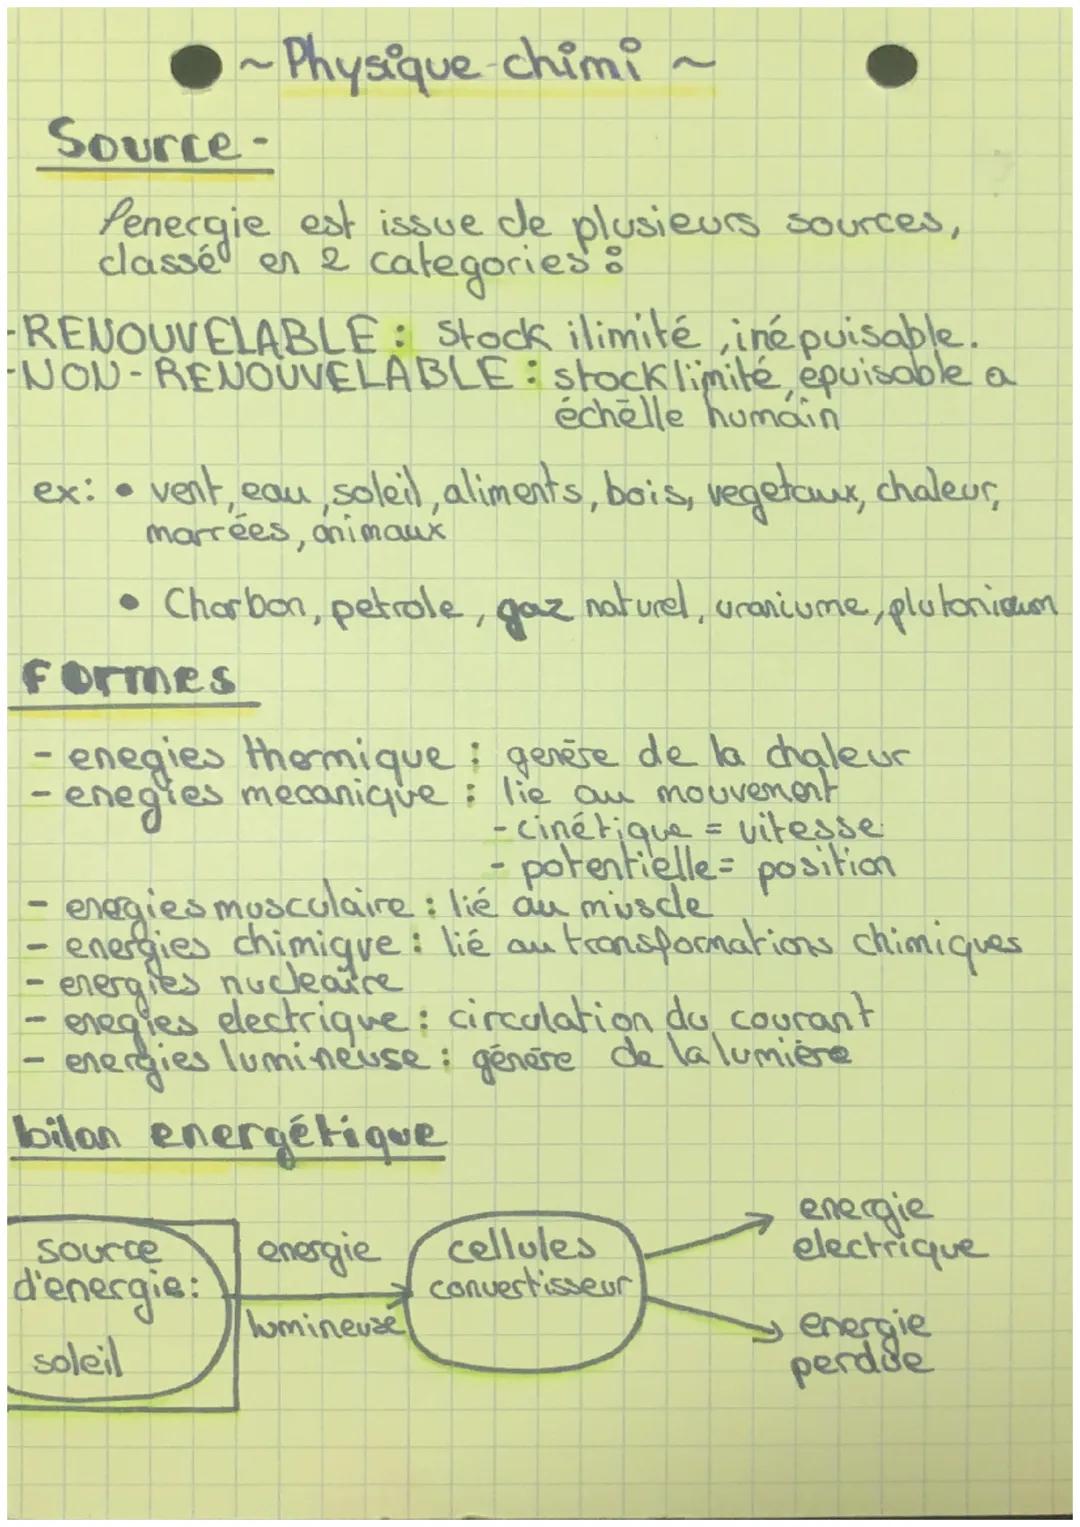 ~ Physique-chimi ~
Source -
l'energie est issue de plusieurs sources,
classé en 2 categories :
-RENOUVELABLE : Stock ilimité, inépuisable.
-NON-RENOUVELABLE : stock limité, epuisable a
échelle humain
ex: • vent, eau, soleil, aliments, bois, vegetaux, chaleur,
marrées, animaux
• Charbon, petrole, gaz naturel, uraniume, plutonium
Formes
- enegies thermique : genère de la chaleur
- enegies mecanique : lie au mouvement
- cinétique = vitesse
- potentielle = position
- enegies musculaire : lié au muscle
- energies chimique : lié au transformations chimiques
- energies nucleaire
- enegies electrique : circulation du courant
- energies lumineuse : génére de la lumière
bilan energétique
source
d'energie:
soleil
energie
lumineuse
cellules
convertisseur
energie
electrique
energie
perdue